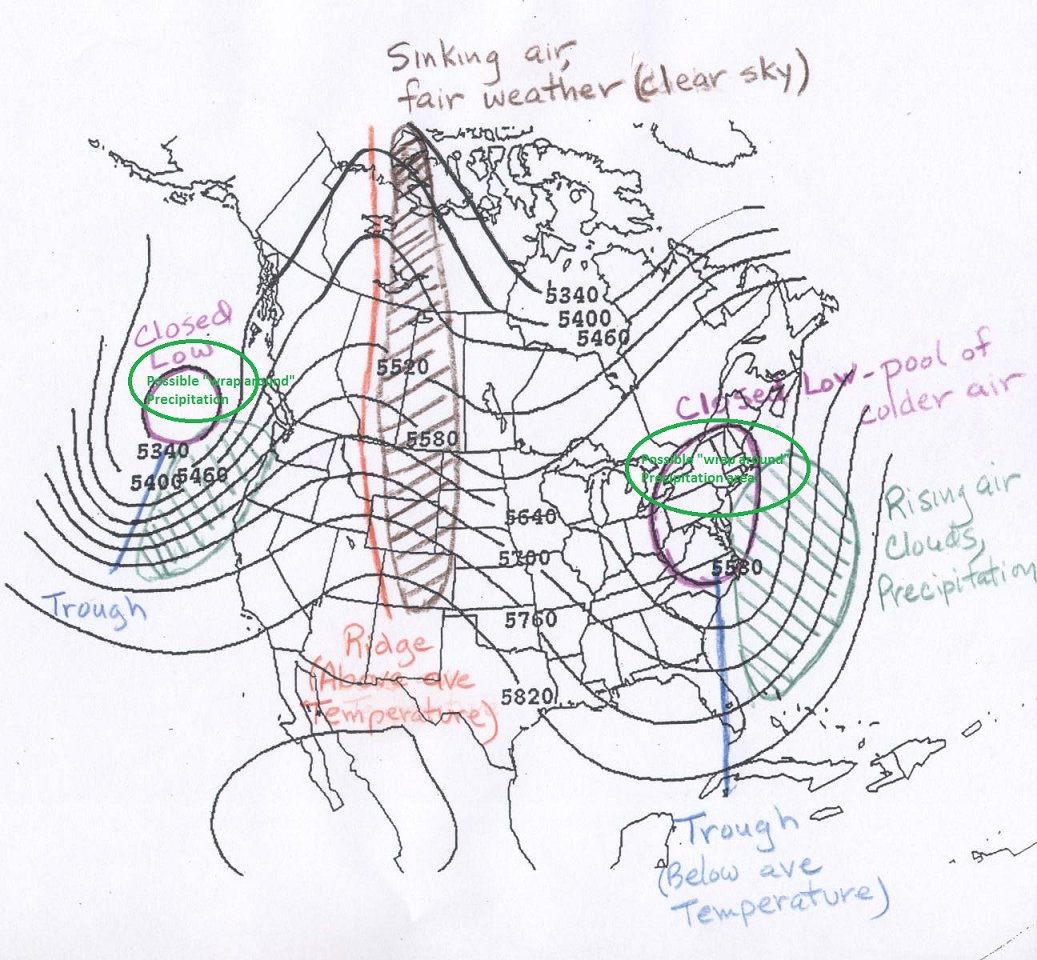 Sinking air,
fair weather (clear sky)
5340
5400
5460
Closed
Low
Possible "wrap around"
Precipitation
5340
5400
5460
5520
5580
Closed Low-pool of
colder air
Possible "wrap around"
Precipitation area
Rising air
Clouds,
Precipitation
5640
5700
5580
5760
5820
Trough
Ridge
(Above ave
Temperature)
Trough
(Below ave
Temperature)